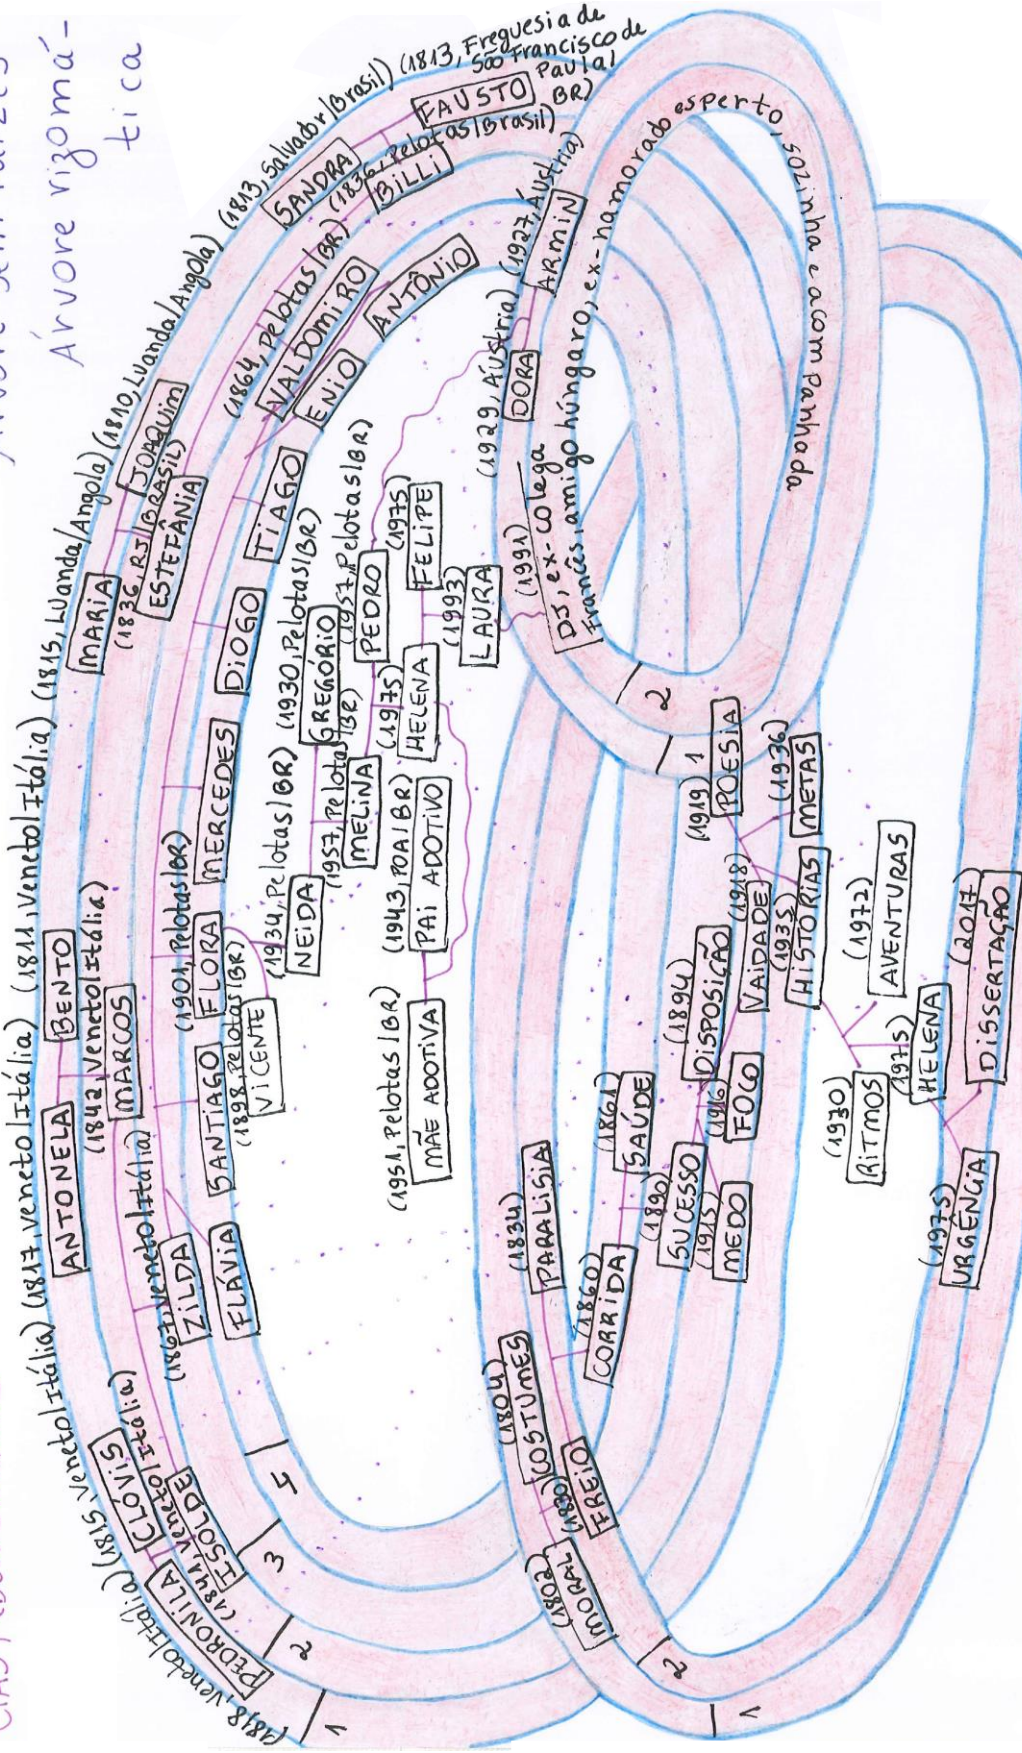 Árvore rizomá-
tica
(1818, Veneto/Itália)
PEDRONILA
(1815, Veneto/Itália)
CLÓVIS
(1817, Veneto/Itália)
ANTONELA
(1811, Veneto/Itália)
BENTO
(1815, Luanda/Angola)
MARIA
(1810, Luanda/Angola)
JOAQUIM
(1813, Salvador/Brasil)
SANDRA
(1813, Freguesia de
São Francisco de
Paula/
BR)
FAUSTO
(1844, Veneto/Itália)
ISOLDE
(1842, Veneto/Itália)
MARCOS
(1836, RJ/BRASIL)
ESTEFÂNIA
(1836, Pelotas/Brasil)
BILLI
(1867, Veneto/Itália)
ZILDA
(1864, Pelotas/BR)
VALDOMIRO
FLÁVIA
SANTIAGO
(1901, Pelotas/BR)
FLORA
MERCEDES
DIOGO
TIAGO
ENIO
ANTÔNIO
(1898, Pelotas/BR)
VICENTE
(1934, Pelotas/BR)
NEIDA
(1930, Pelotas/BR)
GREGÓRIO
(1957, Pelotas/BR)
MELINA
(1957, Pelotas/BR)
PEDRO
(1951, Pelotas/BR)
MÃE ADOTIVA
(1943, POA/BR)
PAI ADOTIVO
(1975)
HELENA
(1975)
FELIPE
(1993)
LAURA
(1929, Áustria)
DORA
(1927, Áustria)
ARMIN
(1991)
DJ, ex-colega
Francês, amigo húngaro, ex-namorado esperto, sozinha e acompanhada
1
2
3
4
1
2
(1802)
MORAL
(1804)
COSTUMES
(1830)
FREIO
(1834)
PARALISIA
(1860)
CORRIDA
(1861)
SAÚDE
(1890)
SUCESSO
(1894)
DISPOSIÇÃO
(1915)
MEDO
(1916)
FOCO
(1918)
VAIDADE
(1919)
POESIA
(1935)
HISTÓRIAS
(1936)
METAS
(1970)
RITMOS
(1972)
AVENTURAS
(1975)
HELENA
(1975)
URGÊNCIA
(2017)
DISSERTAÇÃO
1
2